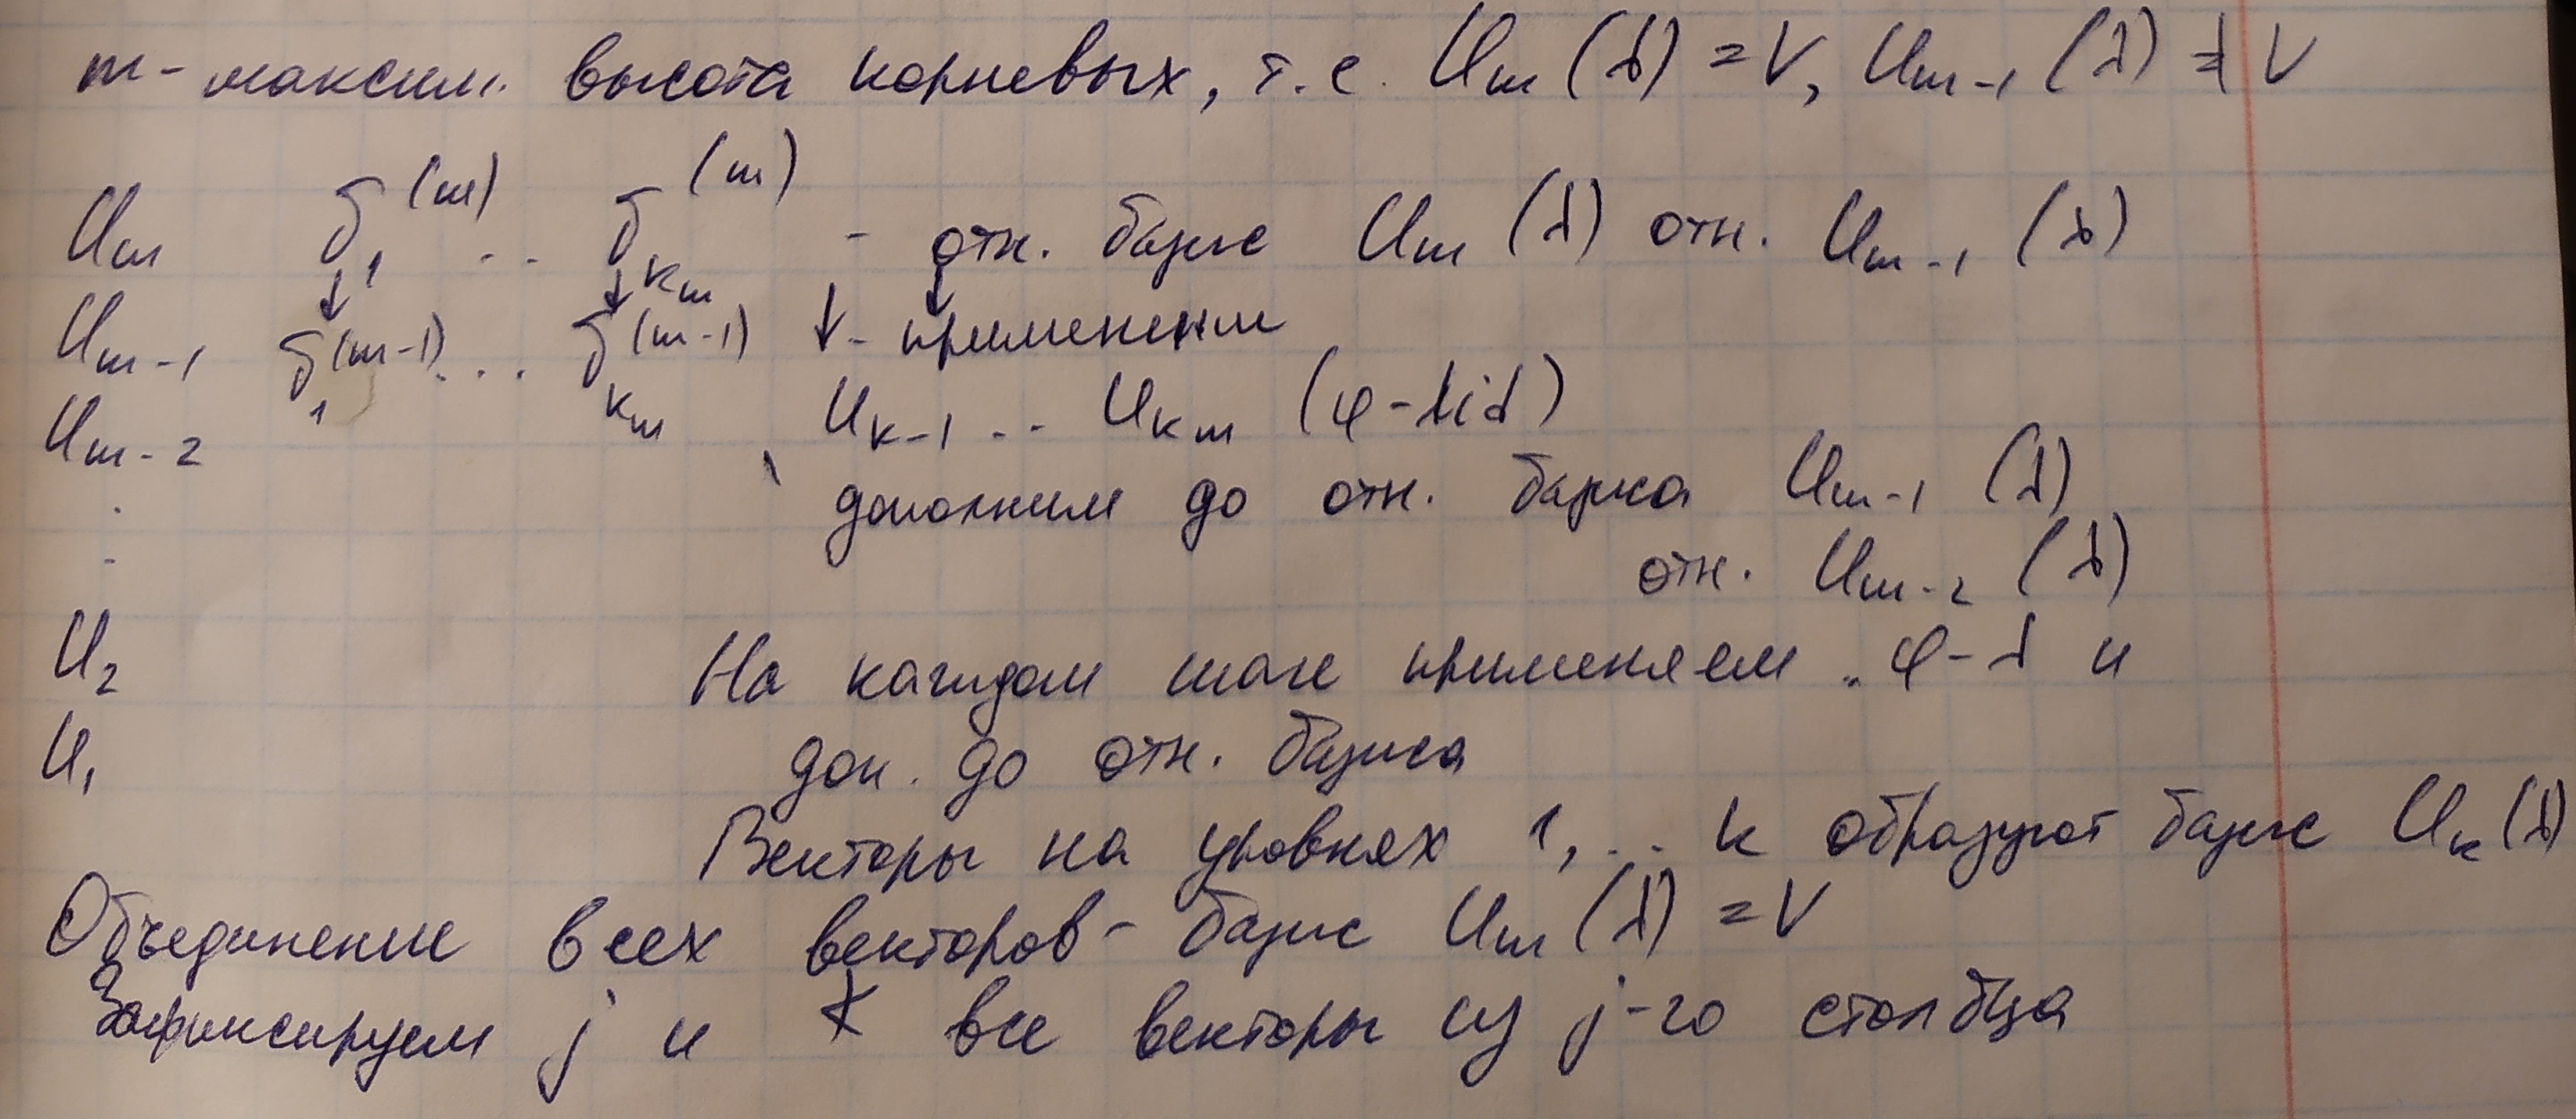 m - максим. высота корневых, т.е. Um (λ) = V, Um-1 (λ) ≠ V
Um δ1^(m) .. δkm^(m) - отн. базис Um (λ) отн. Um-1 (λ)
Um-1 δ1^(m-1) ... δkm^(m-1) ↓ - применении
Um-2 Uk-1 .. Ukm (φ-λid)
дополним до отн. базиса Um-1 (λ)
отн. Um-2 (λ)
U2 На каждом шаге применяем φ-λ и
U1 доп. до отн. базиса
Векторы на уровнях 1, .. k образуют базис Uk (λ)
Объединение всех векторов - базис Um (λ) = V
Зафиксируем j и все векторы из j-го столбца